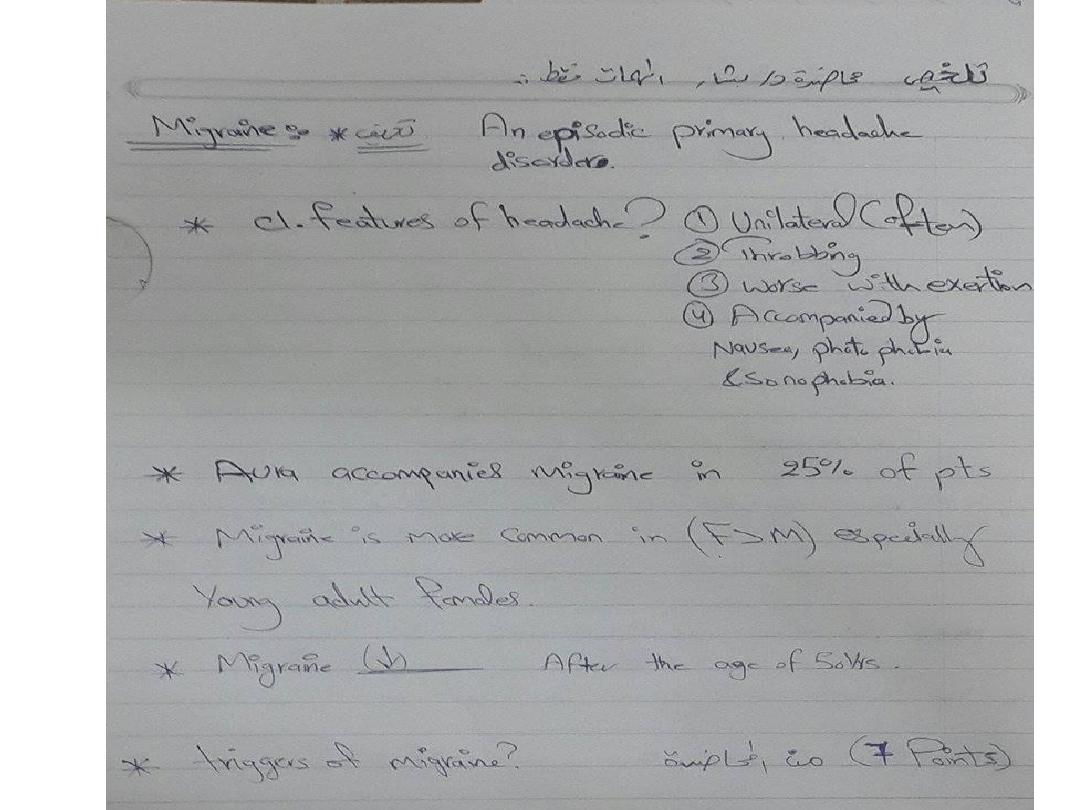 تلخيص محاضرة د. بشار المهات فقط :.
Migraine :- * تعريف An episodic primary headache
disorders.
* cl. features of headache? ① Unilateral (often)
② Throbbing
③ worse with exertion
④ Accompanied by
Nausea, photo phobia
& sonophobia.
* Aura accompanies migraine in 25% of pts
* Migraine is more common in (F>M) especially
Young adult females.
* Migraine (↓) After the age of 50 yrs.
* triggers of migraine? من المحاضرة (7 Points)